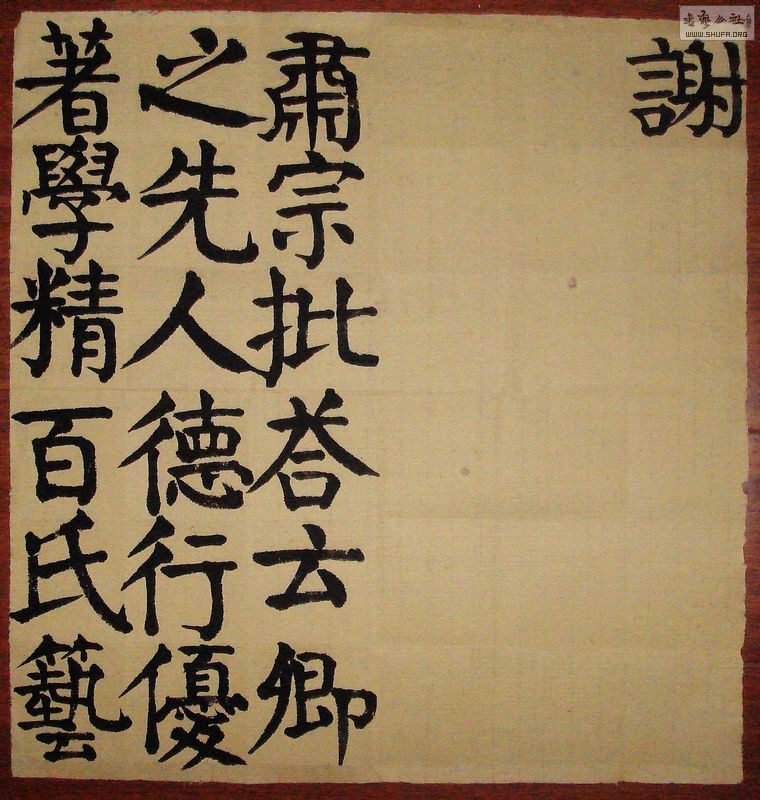 謝
肅宗批荅云卿
之先人德行優
著學精百氏藝
书艺公社
WWW.SHUFA.ORG